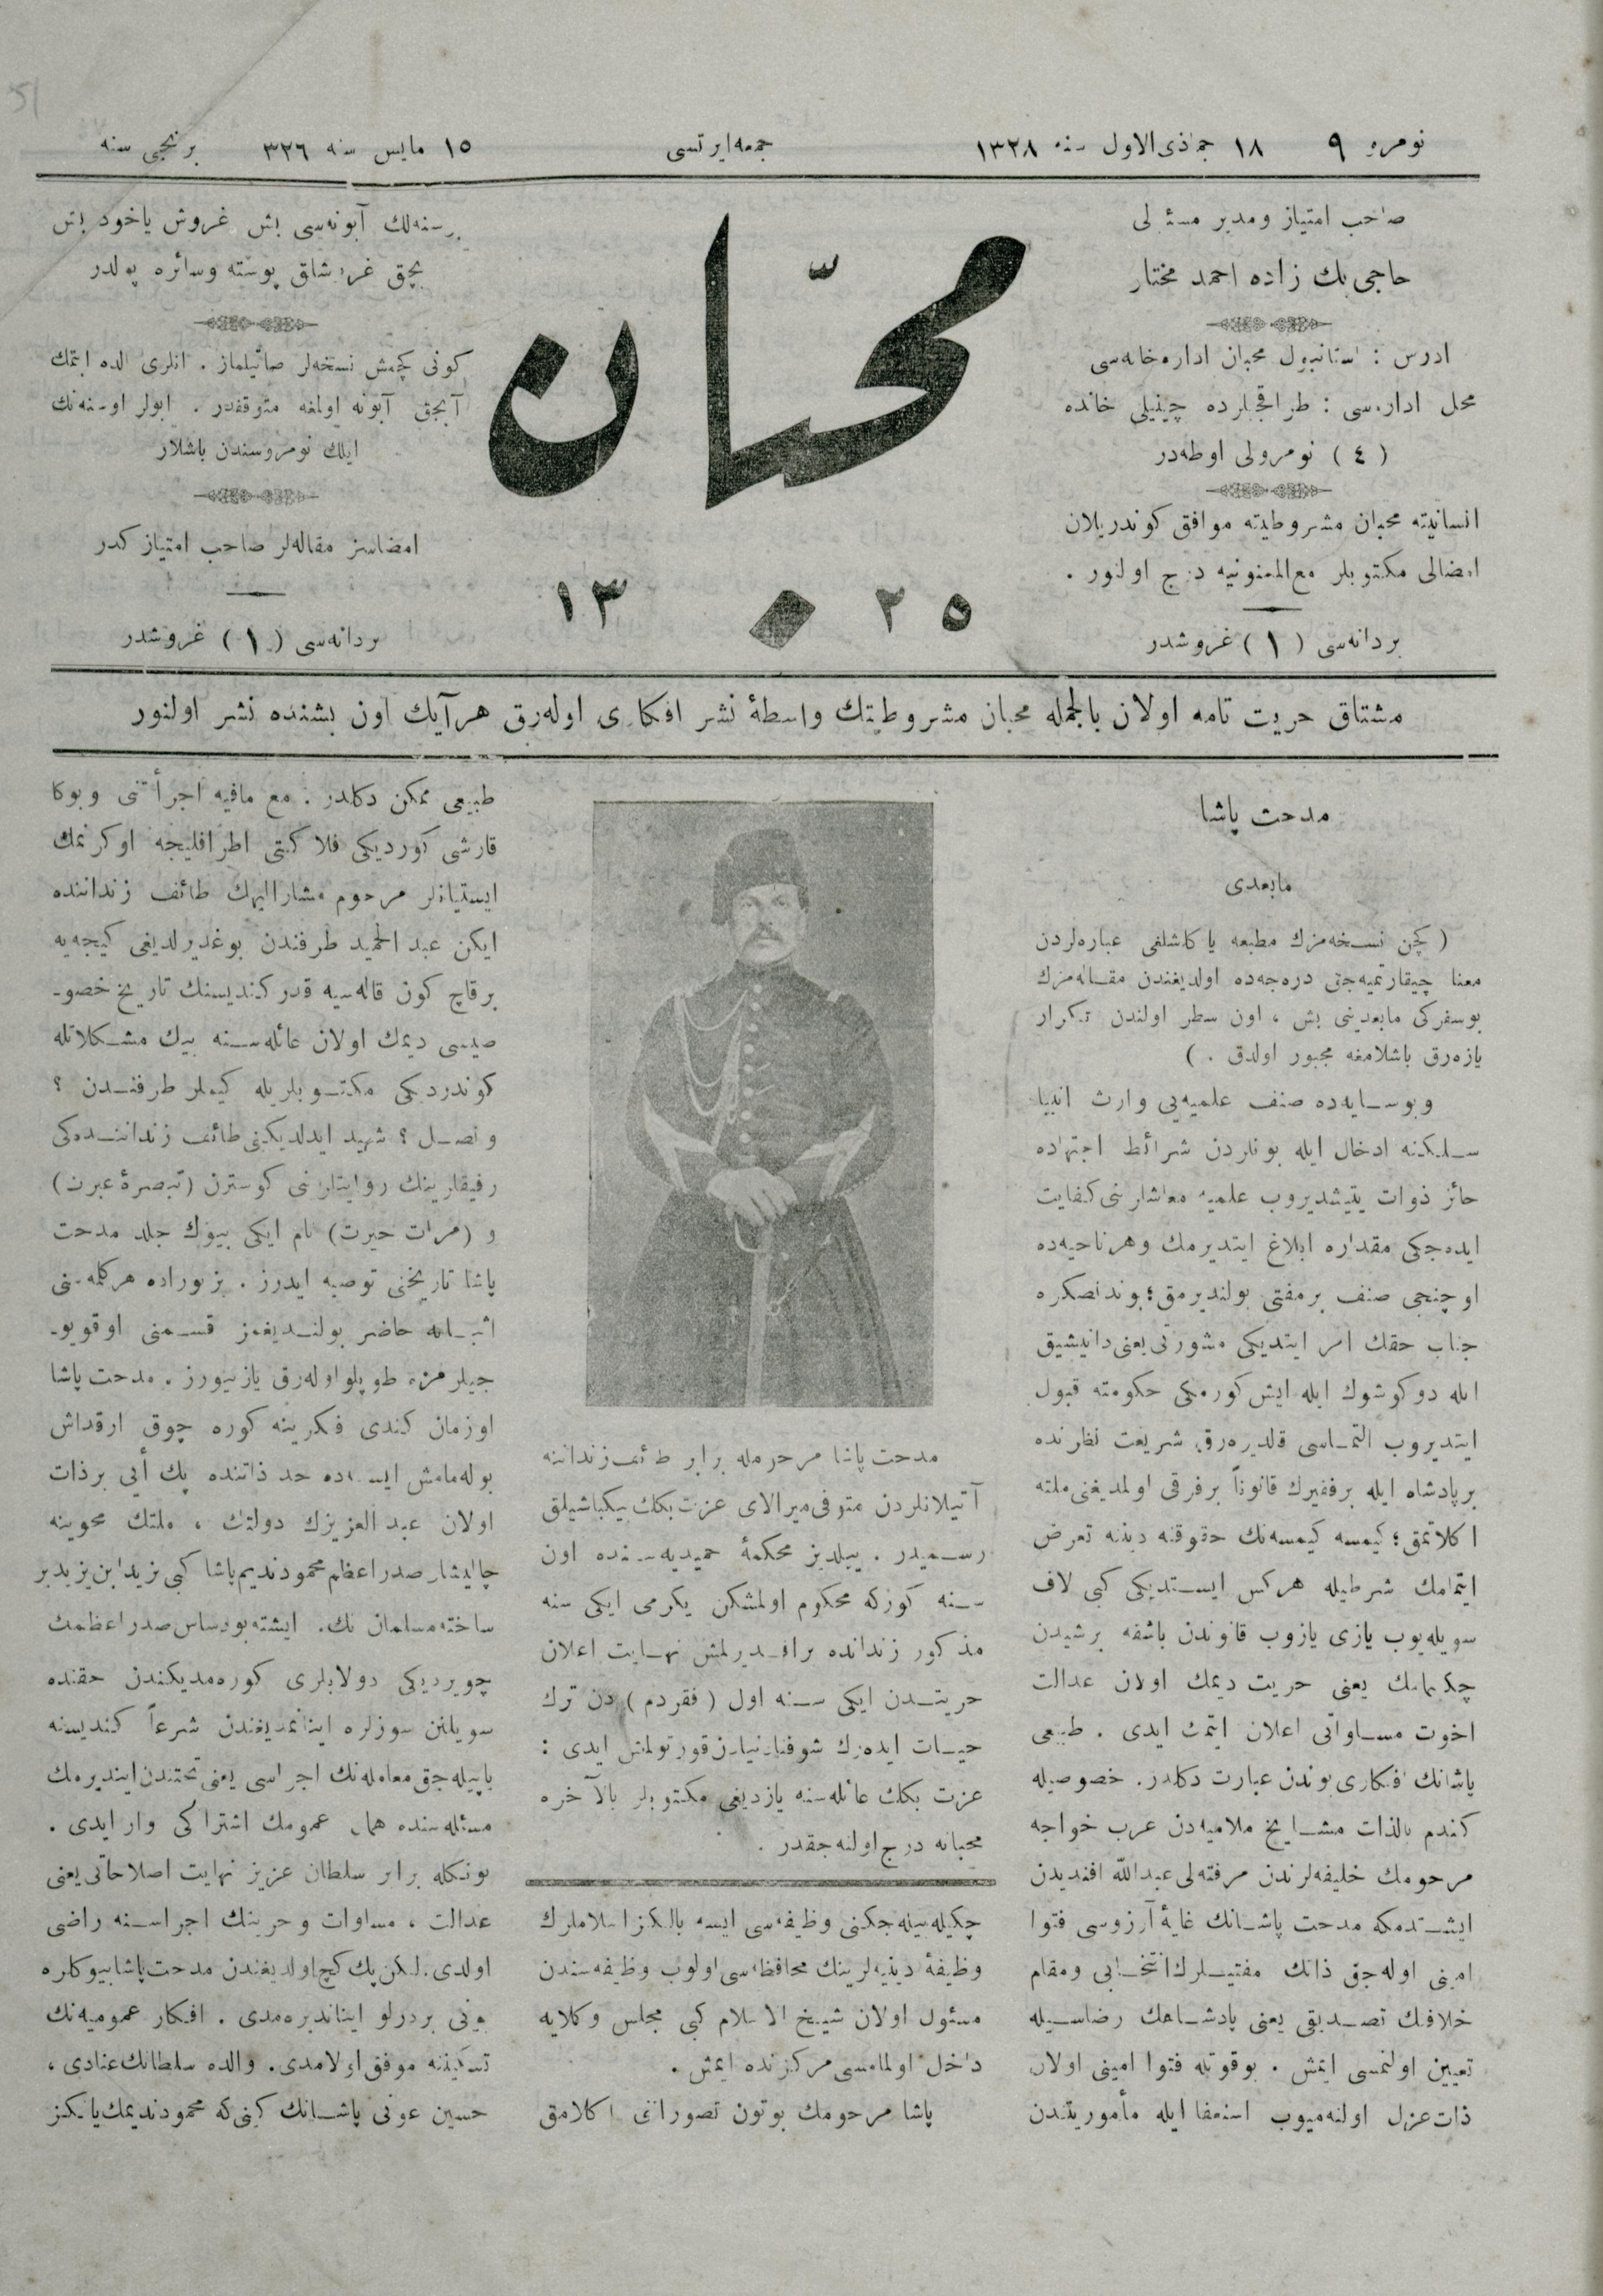 نومرو ٩
١٨ جمادی‌الاول سنه ١٣٢٨
جمعه‌ایرتسی
١٥ مایس سنه ٣٢٦
برنجی سنه
صاحب امتیاز ومدیر مسئولی
حاجی بك زاده احمد مختار
ادرس : استانبول محبان اداره‌خانه‌سی
محل اداره‌سی : طراقجیلرده چینیلی خانده
( ٤ ) نومرولی اوطه‌در
انسانیته محبان مشروطیته موافق کوندریلان
امضالی مکتوبلر مع‌الممنونیه درج اولنور .
بردانه‌سی ( ١ ) غروشدر
محبّان
١٣ ٢٥
برسنه‌لك آبونه‌سی بش غروش یاخود بش
بچق غروشلق پوسته وسائره پولدر
کونی کچمش نسخه‌لر صاتیلماز . انلری الده ایتمك
آنجق آبونه اولمغه متوقفدر . ابولر اوسنه‌نك
ایلك نومروسندن باشلار
امضاسز مقاله‌لر صاحب امتیازکدر
بردانه‌سی ( ١ ) غروشدر
مشتاق حریت تامه اولان بالجمله محبان مشروطیتك واسطهٔ نشر افکاری اوله‌رق هرآیك اون بشنده نشر اولنور
مدحت پاشا
مابعدی
( کچن نسخه‌مزك مطبعه یاکلشلغی عباره‌لردن
معنا چیقارتمیه‌جق دره‌جه‌ده اولدیغندن مقاله‌مزك
بوسفرکی مابعدینی بش ، اون سطر اولندن تکرار
یازه‌رق باشلامغه مجبور اولدق . )
وبوسایه‌ده صنف علمیه‌یی وارث انبیا
سلکنه ادخال ایله بونلردن شرائط اجتهاده
حائز ذوات یتیشدیروب علمیه معاشارنی کفایت
ایده‌جکی مقداره ابلاغ ایتدیرمك وهرناحیه‌ده
اوچنجی صنف برمفتی بولندیرمق؛ بوندنصکره
جناب حقك امر ایتدیکی مشورتی یعنی دانیشیق
ایله دوکوشوك ایله ایش کورمکی حکومته قبول
ایتدیروب التماسی قالدیره‌رق شریعت نظرنده
برپادشاه ایله برفقیرك قانوناً برفرقی اولمدیغنی ملته
اکلاتمق؛ کیمسه کیمسه‌نك حقوقنه دیننه تعرض
ایتمامك شرطیله هرکس ایستدیکی کبی لاف
سویله‌یوب یازی یازوب قانوندن باشقه برشیدن
چکنمامك یعنی حریت دیمك اولان عدالت
اخوت مساواتی اعلان ایتمك ایدی . طبیعی
پاشانك افکاری بوندن عبارت دکلدر. خصوصیله
کندم بالذات مشایخ ملامیه‌دن عرب خواجه
مرحومك خلیفه‌لرندن مرفته‌لی عبدالله افندیدن
ایشتدمکه مدحت پاشانك غایهٔ آرزوسی فتوا
امینی اوله‌جق ذاتك مفتیلرك انتخابی ومقام
خلافتك تصدیقی یعنی پادشاهك رضاسیله
تعیین اولنمسی ایمش . بوقوتله فتوا امینی اولان
ذات عزل اولنه‌میوب استعفا ایله مأموریتندن
مدحت پاشا مرحومله برابر طائف زنداننه
آتیلانلردن متوفی میرالای عزت بکك بیکباشیلق
رسمیدر . ییلدیز محکمهٔ حمیدیه‌سنده اون
سنه کورکه محکوم اولمشکن یکرمی ایکی سنه
مذکور زندانده براقدیرلمش نهایت اعلان
حریتدن ایکی سنه اول ( فقردم ) دن ترك
حیات ایده‌رك شوفنا دنیادن قورتولمش ایدی :
عزت بکك عائله‌سنه یازدیغی مکتوبلر بالآخره
محبانه درج اولنه‌جقدر .
چکیله‌بیله‌جکنی وظیفه‌سی ایسه یالکز اسلاملرك
وظیفهٔ دینیه‌لرینك محافظه‌سی اولوب وظیفه‌سندن
مسئول اولان شیخ الاسلام کبی مجلس وکلایه
داخل اولمامسی مرکزنده ایمش .
پاشا مرحومك بوتون تصوراتنی اکلامق
طبیعی ممکن دکلدر . مع مافیه اجرأتنی وبوکا
قارشی کوردیکی فلاکتی اطرافلیجه اوکرنمك
ایستیانلر مرحوم مشارالیهك طائف زنداننده
ایکن عبد الحمید طرفندن بوغدیرلدیغی کیجه‌یه
برقاچ کون قاله‌سیه قدر کندیسنك تاریخ خصو-
صیسی دیمك اولان عائله‌سنه بیك مشکلاتله
کوندردیکی مکتوبلریله کیملر طرفندن ؟
ونصل ؟ شهید ایدلدیکنی طائف زنداننده‌کی
رفیقلرینك روایتلرنی کوسترن (تبصرهٔ عبرت)
و (مرات حیرت) نام ایکی بیوك جلد مدحت
پاشا تاریخنی توصیه ایدرز . بزبوراده هرکلمه‌سنی
اثباته حاضر بولندیغمز قسمنی اوقویو-
جیلرمزه طوپلو اوله‌رق یازییورز . مدحت پاشا
اوزمان کندی فکرینه کوره چوق ارقداش
بوله‌مامش ایسه‌ده حد ذاتنده پك أیی برذات
اولان عبد العزیزك دولتك ، ملتك محوینه
چالیشان صدراعظم محمودندیم پاشا کبی یزیدابن یزید بر
ساخته مسلمان نك. ایشته بودساس صدراعظمك
چویردیکی دولابلری کوره‌مدیکندن حقنده
سویلنن سوزلره اینانمدیغندن شرعاً کندیسنه
یاپیله‌جق معامله‌نك اجراسی یعنی تختندن ایندیرمك
مسئله‌سنده همان عمومك اشتراکی وارایدی .
بونکله برابر سلطان عزیز نهایت اصلاحاتی یعنی
عدالت ، مساوات وحریتك اجراسنه راضی
اولدی. لکن پك کچ اولدیغندن مدحت پاشا بیوکلره
بونی بردرلو ایناندیره‌مدی . افکار عمومیه‌نك
تسکیننه موفق اولامدی. والده سلطانك عنادی ،
حسین عونی پاشانك کینی که محمودندیمك یالکز